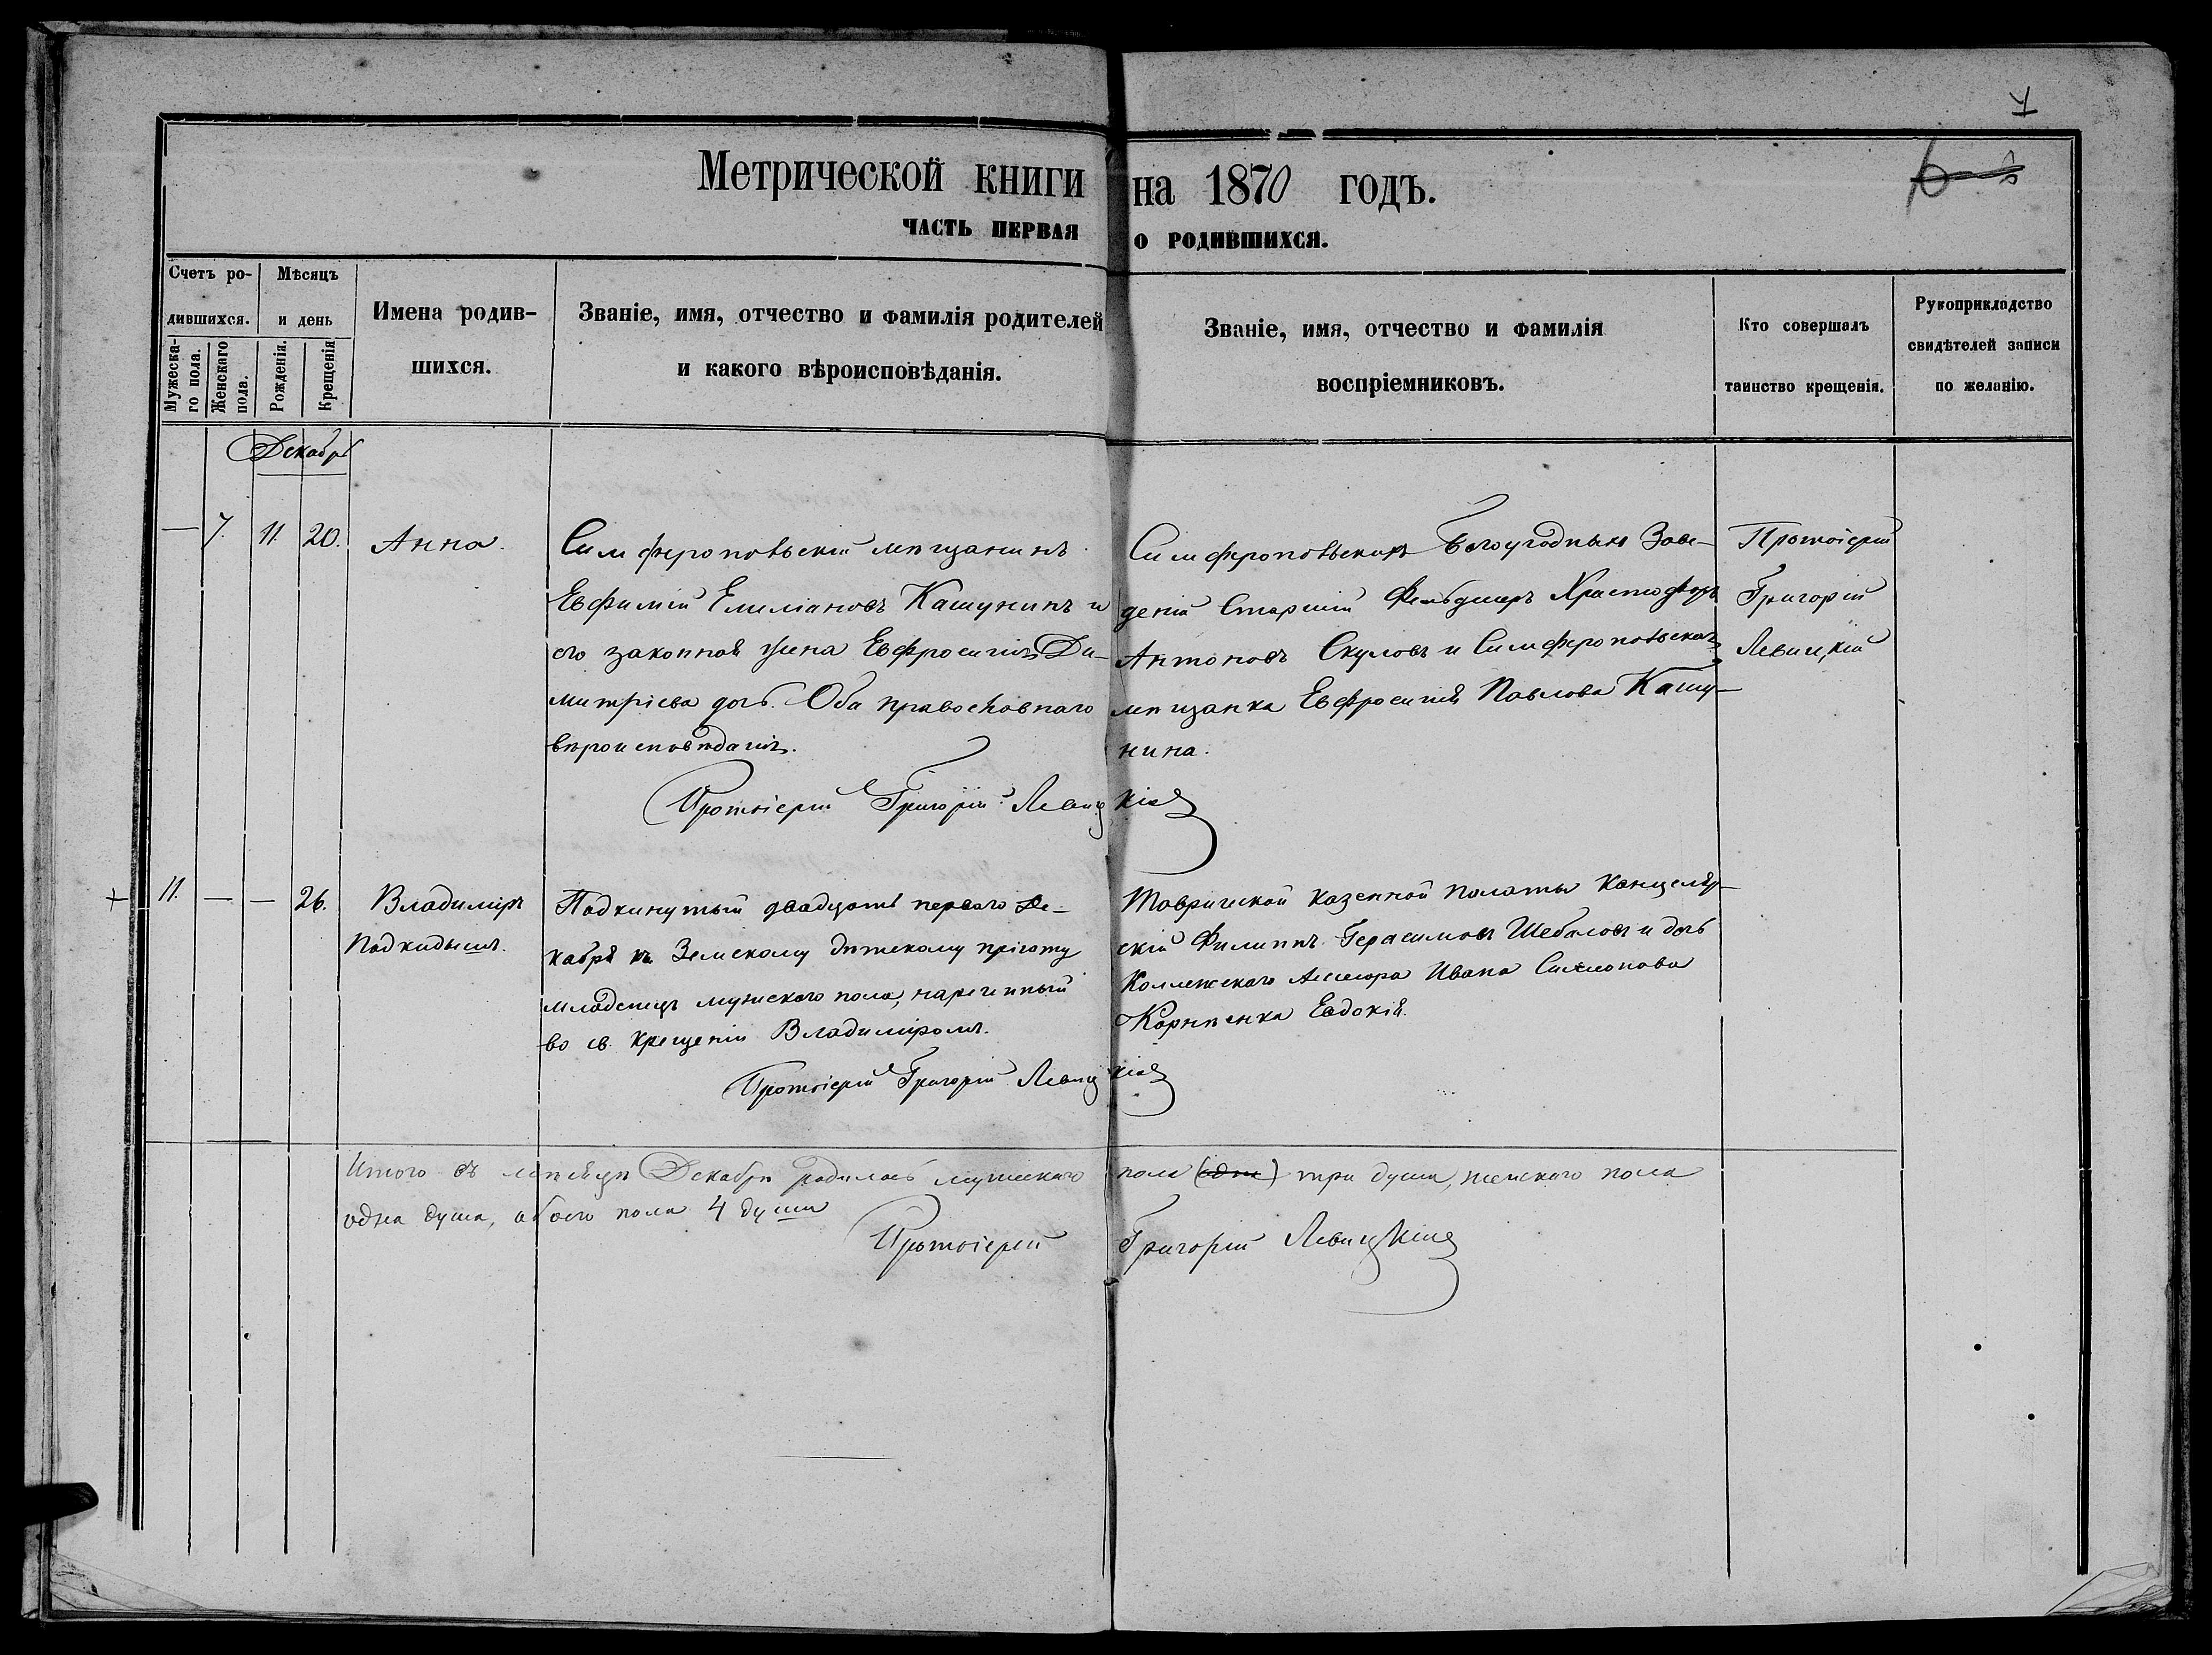 7
Метрической книги на 1870 годъ.
ЧАСТЬ ПЕРВАЯ О РОДИВШИХСЯ.
Счетъ родившихся.
Мѣсяцъ и день
Имена родившихся.
Званіе, имя, отчество и фамилія родителей
и какого вѣроисповѣданія.
Званіе, имя, отчество и фамилія
воспріемниковъ.
Кто совершалъ
таинство крещенія.
Рукоприкладство
свидѣтелей записи
по желанію.
Мужеска-
го пола.
Женскаго
пола.
Рожденія.
Крещенія
Декабрь
— 7. 11. 20.
Анна.
Симферопольскій мѣщанинъ
Евфимій Емиліановъ Кашунинъ и
его законная жена Евфросинія Ди-
митріева дочь. Оба православнаго
вѣроисповѣданія.
Симферопольскихъ Богоугодныхъ Заве-
деній Старшій Фельдшеръ Христофоръ
Антоновъ Скуловъ и Симферопольская
мѣщанка Евфросинія Павлова Кашу-
нина.
Протоіерей
Григорій
Левицкій
Протоіерей Григорій Левицкій
+ 11. — — 26.
Владиміръ
Подкидышъ.
Подкинутый двадцать перваго Де-
кабря къ Земскому дѣтскому пріюту
младенецъ мужескаго пола, нареченный
во св. крещеніи Владиміромъ.
Таврической казенной палаты Канцеляр-
скій Филиппъ Герасимовъ Шебаловъ и дочь
Коллежскаго Ассесора Ивана Симонова
Корнѣенка Евдокія.
Протоіерей Григорій Левицкій
Итого въ мѣсяцѣ Декабрѣ родилось мужескаго пола три души, женскаго пола
одна душа, обоего пола 4 души
Протоіерей Григорій Левицкій